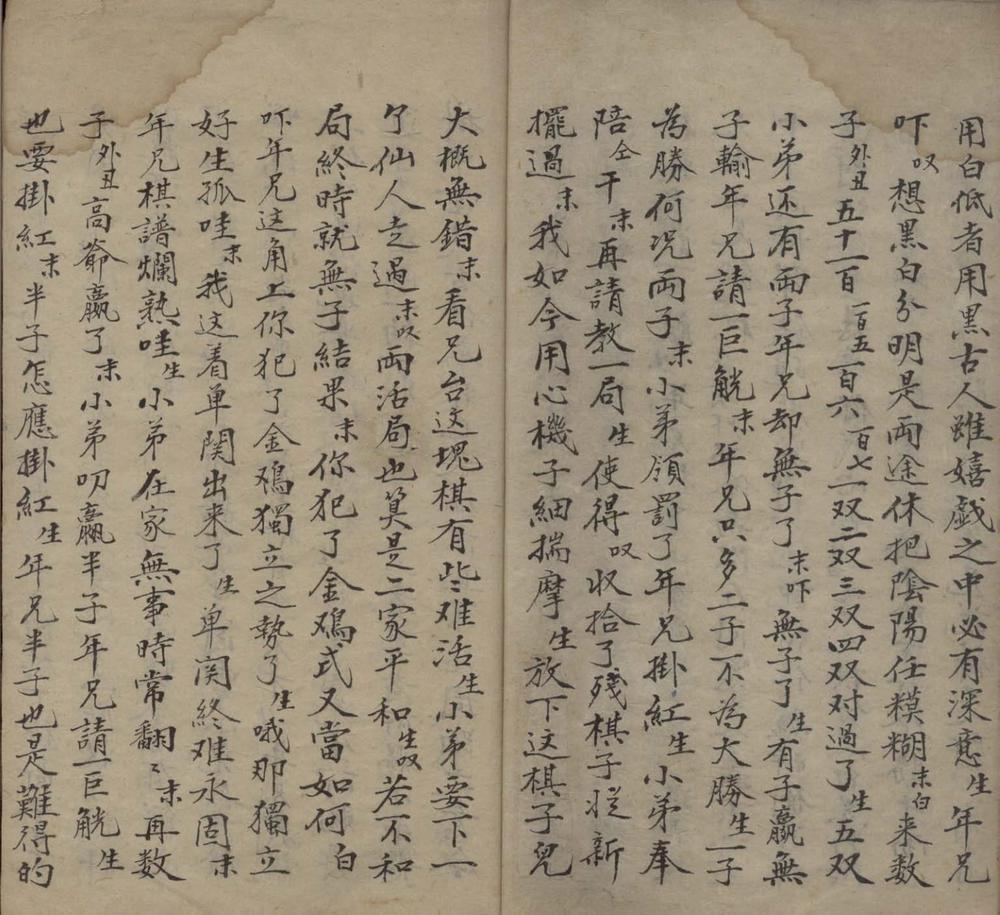 用白低者用黑古人雖嬉戯之中必有深意生年兄
吓叹想黑白分明是両途休把陰陽任糢糊末白来数
子外丑五十一百一百五一百六百七一双二双三双四双对過了生五双
小弟还有両子年兄却無子了末吓無子了生有子贏無
子輸年兄請一巨觥末年兄只多二子不為大勝生一子
為勝何况両子末小弟領罰了年兄掛紅生小弟奉
陪仝干末再請教一局生使得叹収拾了殘棋子從新
擺過末我如今用心機子細揣摩生放下这棋子兒
大概無錯末看兄台这塊棋有些难活生小弟要下一
了仙人走過末叹両活局也算是二家平和生叹若不和
局終時就無子結果末你犯了金鳮式又當如何白
吓年兄这角上你犯了金鳮獨立之勢了生哦那獨立
好生孤哇末我这着单関出来了生单関終难永固末
年兄棋譜爛熟哇生小弟在家無事時常翻〻末再数
子外丑高爺贏了末小弟叨贏半子年兄請一巨觥生
也要掛紅末半子怎應掛紅生年兄半子也是難得的